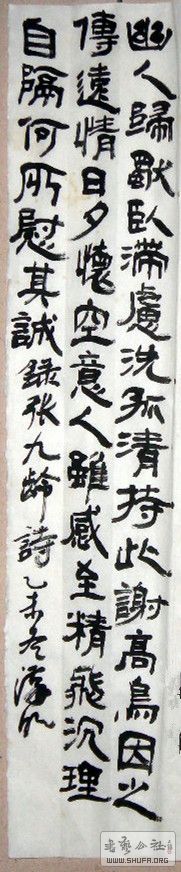 幽人歸獨臥滯慮洗孤清持此謝高鳥因之
傳遠情日夕懷空意人雖感至精飛沉理
自隔何所慰其誠錄張九齡詩乙未冬
書藝公社
WWW.SHUFA.ORG